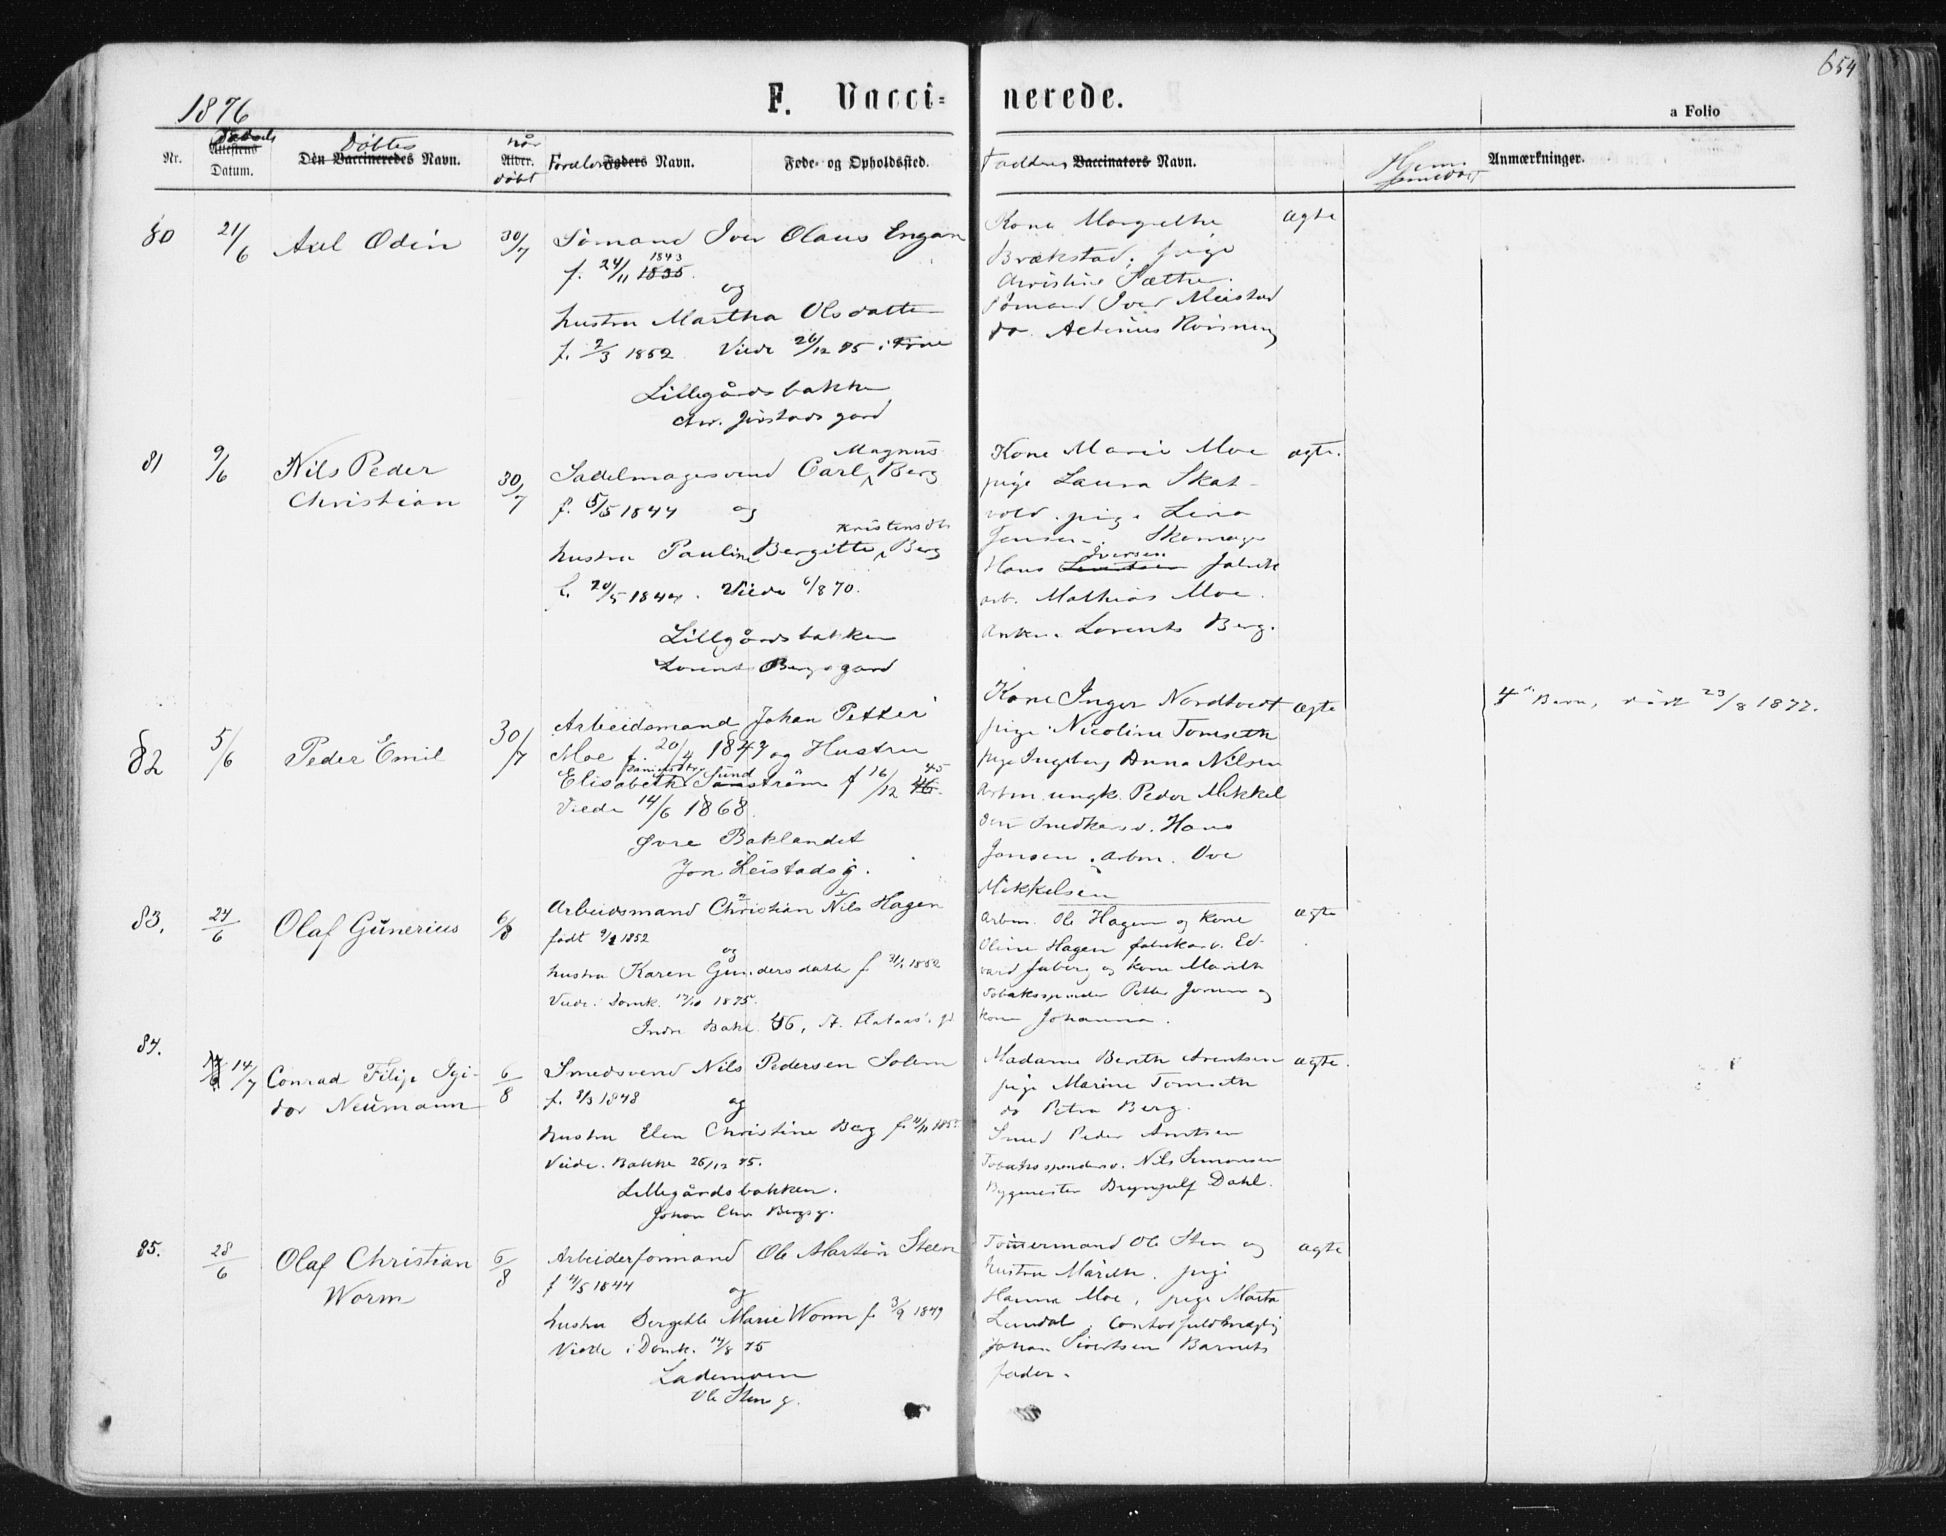 1876
F. Vacci=
nerede.
654
a Folio
Nr.
Fødsels
Attestens
Datum.
Døbtes
Den Vaccineredes Navn.
når
Alder.
døbt
Forældres Faders Navn.
Føde- og Opholdssted.
Faddere Vaccinators Navn.
Hjem
Anmærkninger.
80
21/6
Axel Odin
30/7
Sømand Iver Olaus Engan
f. 24/11 1835 1843
og
hustru Martha Olsdatter
f. 2/3 1852 Viede 26/12 75 i
Lillegårdsbakken
gård
Kone Margrethe
Brækstad, pige
Christine Sætter
Sømand Iver Meistad
do.
ægte
81
9/6
Nils Peder
Christian
30/7
Magnus
Sadelmagersvend Carl Berg
f. 5/5 1844 og
Kristensdtr
hustru Pauline Bergitte Berg
f. 20/5 1844. Viede 6/8 70.
Lillegårdsbakken
Lorents Bergs gård
Kone Marie Moe
pige Laura Skat-
vold. pige Lina
Jensen. Skomager
Iversen
Hans
arb. Mathias Moe.
Lorents Berg.
ægte.
82
5/6
Peder Emil
30/7
Arbeidsmand Johan Petter
Moe f. 20/4 1847 og Hustru
Danielsdtr Sund 45
Elisabeth Sanström f 16/12 46
Viede 14/6 1868.
Øvre Baklandet
Jon Leistadsg.
Kone Inger Nordtvedt
pige Nicoline Tomseth
pige Ingeborg Anna Nilsen
Arbm. ungk. Peder Mikkel
sen Snedkersv. Hans
Jansen. Arbm. Ove
Mikkelsen
ægte
4 Barn, død 23/8 1877.
83.
24/6
Olaf Gunerius
6/8
Arbeidsmand Christian Nils Hagen
født 9/2 1852
og
hustru Karen Gundersdatter f 31/1 1852
Viede i Domk. 17/10 1875.
Indre Bakl. 46, A. Flataas' gd
Arbm. Ole Hagen og kone
Oline Hagen fabrikarv. Ed-
vard og kone Marith
Tobaksspinder Petter og
kone Johanna.
ægte
84.
14/7
Conrad Filip Igi-
dor Neumann
6/8
Smedsvend Nils Pedersen Solem
f. 1/3 1848 og
hustru Elen Christine Berg f.
Viede i Bakke 26/12 75.
Lillegårdsbakken.
Johan Chr Bergsg.
Madame Berith Arentsen
pige Marine Tomseth
do Petra Berg.
Smed Peder Arntsen
Tobaksspindersv. Nils Simonsen
Bygmester Brynjulf Dahl.
ægte.
85.
28/6
Olaf Christian
Worm
6/8
Arbeiderformand Ole Martin Steen
f 11/5 1844
og
hustru Bergitte Marie Worm f. 3/9 1849
Viede i Domk. 14/8 75
Lademoen
Ole Stens g.
Tømmermand Ole Sten og
hustru Marith. pige
Hanna Moe, pige Marta
Lundal,
Johan Sivertsen Barnets
fader.
ægte